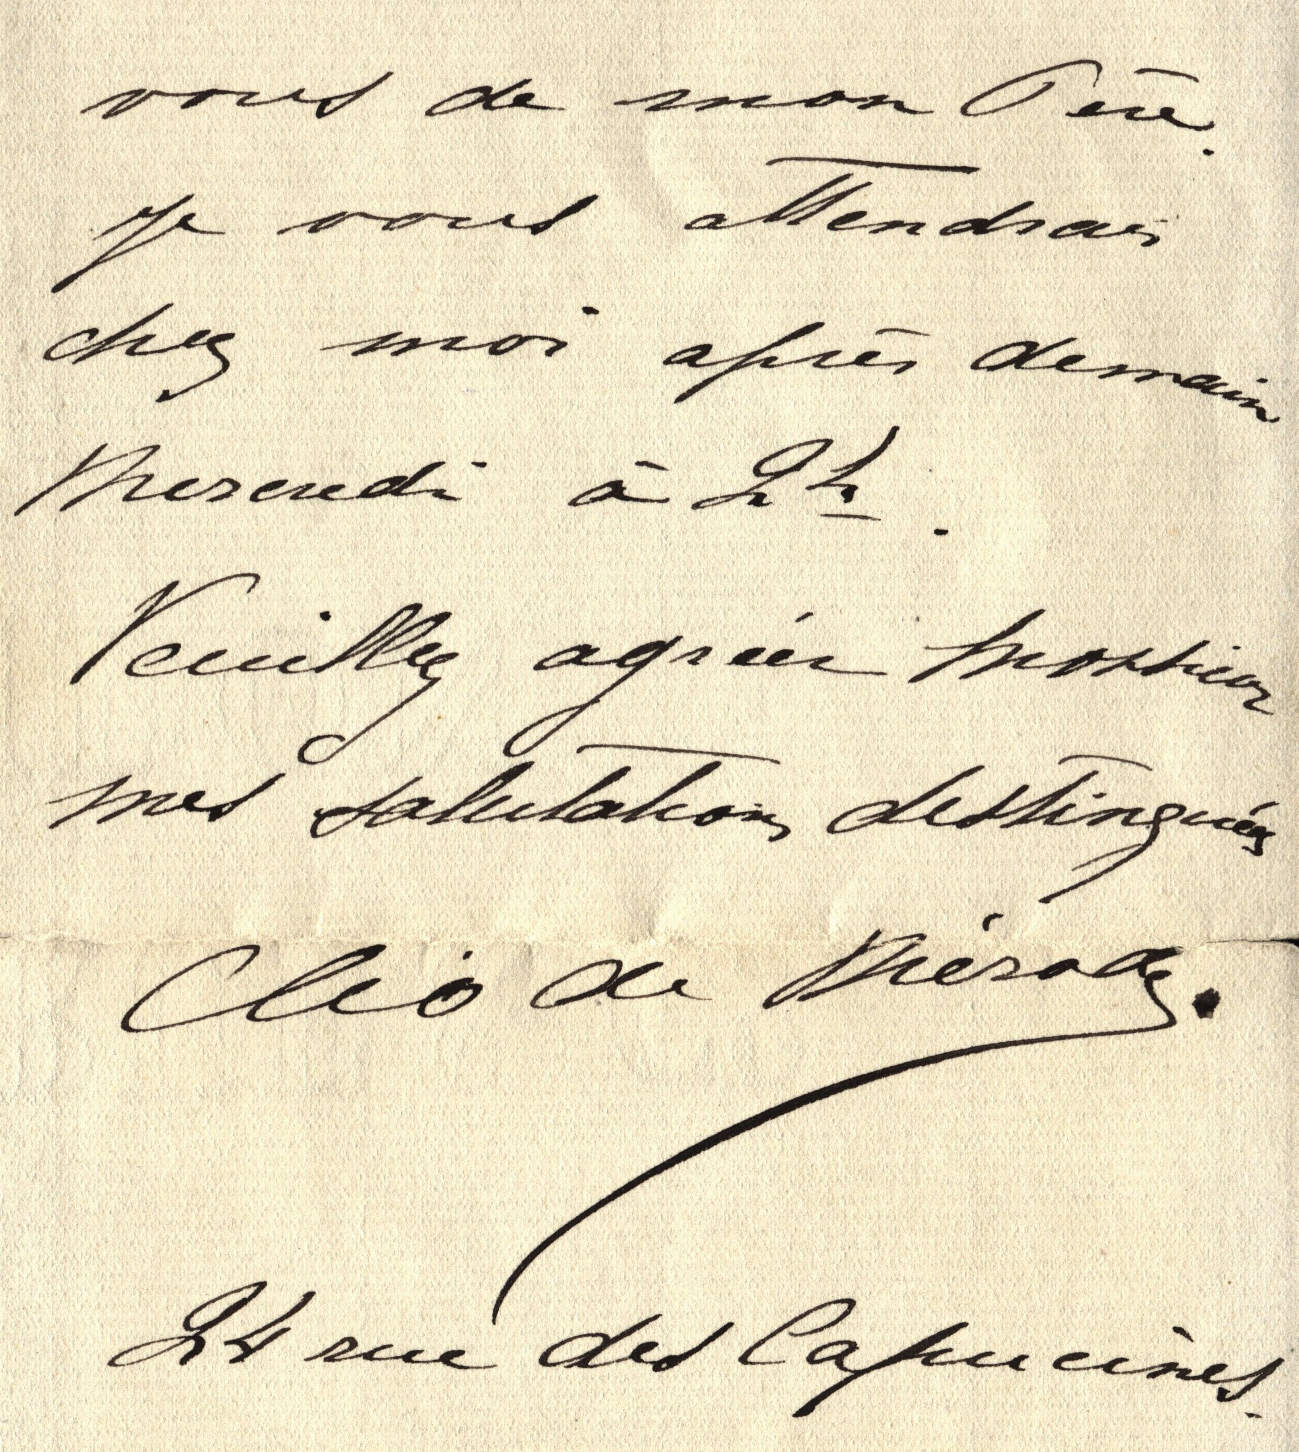 vous de mon Père.
je vous attendrai
chez moi après demain
Mercredi à 2h.
Veuillez agréer Monsieur
mes salutations distinguées
Cléo de Mérode.
24 rue des Capucines.